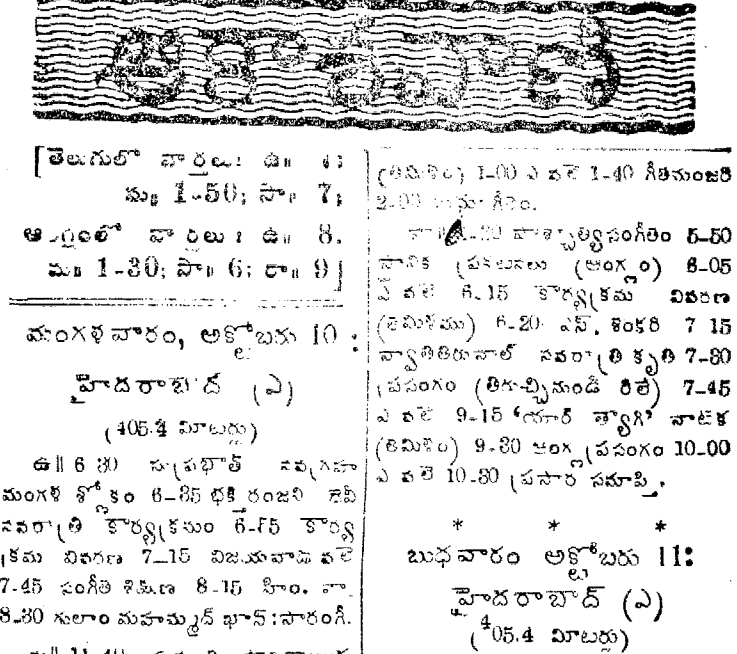 ఆకాశవాణి
[తెలుగులో వార్తలు: ఉ॥
మ॥ 1-50; సా॥ 7;
ఆంగ్లంలో వార్తలు: ఉ॥ 8.
మ॥ 1-30; సా॥ 6; రా॥ 9]
మంగళవారం, అక్టోబరు 10 :
హైదరాబాద్ (ఎ)
(405.4 మీటర్లు)
ఉ॥ 6 30 సుప్రభాత్ నవగ్రహ
మంగళ శ్లోకం 6-35 భక్తి రంజని దేవీ
నవరాత్రి కార్యక్రమం కార్య
క్రమ వివరణ 7-15 విజయవాడ వలె
7-45 సంగీత శిక్షణ 8-15 హిం. వా.
8-30 గులాం మహమ్మద్ ఖాన్:సారంగీ.
(తమిళం) 1-00 ఎ వలె 1-40 గీతమంజరి
2-00
పాశ్చాత్యసంగీతం 5-50
స్థానిక ప్రకటనలు (ఆంగ్లం) 6-05
ఎ వలె 6.15 కార్యక్రమ వివరణ
(తమిళము) 6-20 ఎస్. శంకరి 7 15
స్వాతితిరునాల్ నవరాత్రి కృతి 7-30
ప్రసంగం (తిరుచ్చినుండి రిలే) 7-45
ఎ వలె 9-15 'యార్ త్యాగి' నాటిక
(తమిళం) 9-30 ఆంగ్ల ప్రసంగం 10-00
ఎ వలె 10-30 ప్రసార సమాప్తి.
* * *
బుధవారం అక్టోబరు 11:
హైదరాబాద్ (ఎ)
(405.4 మీటర్లు)